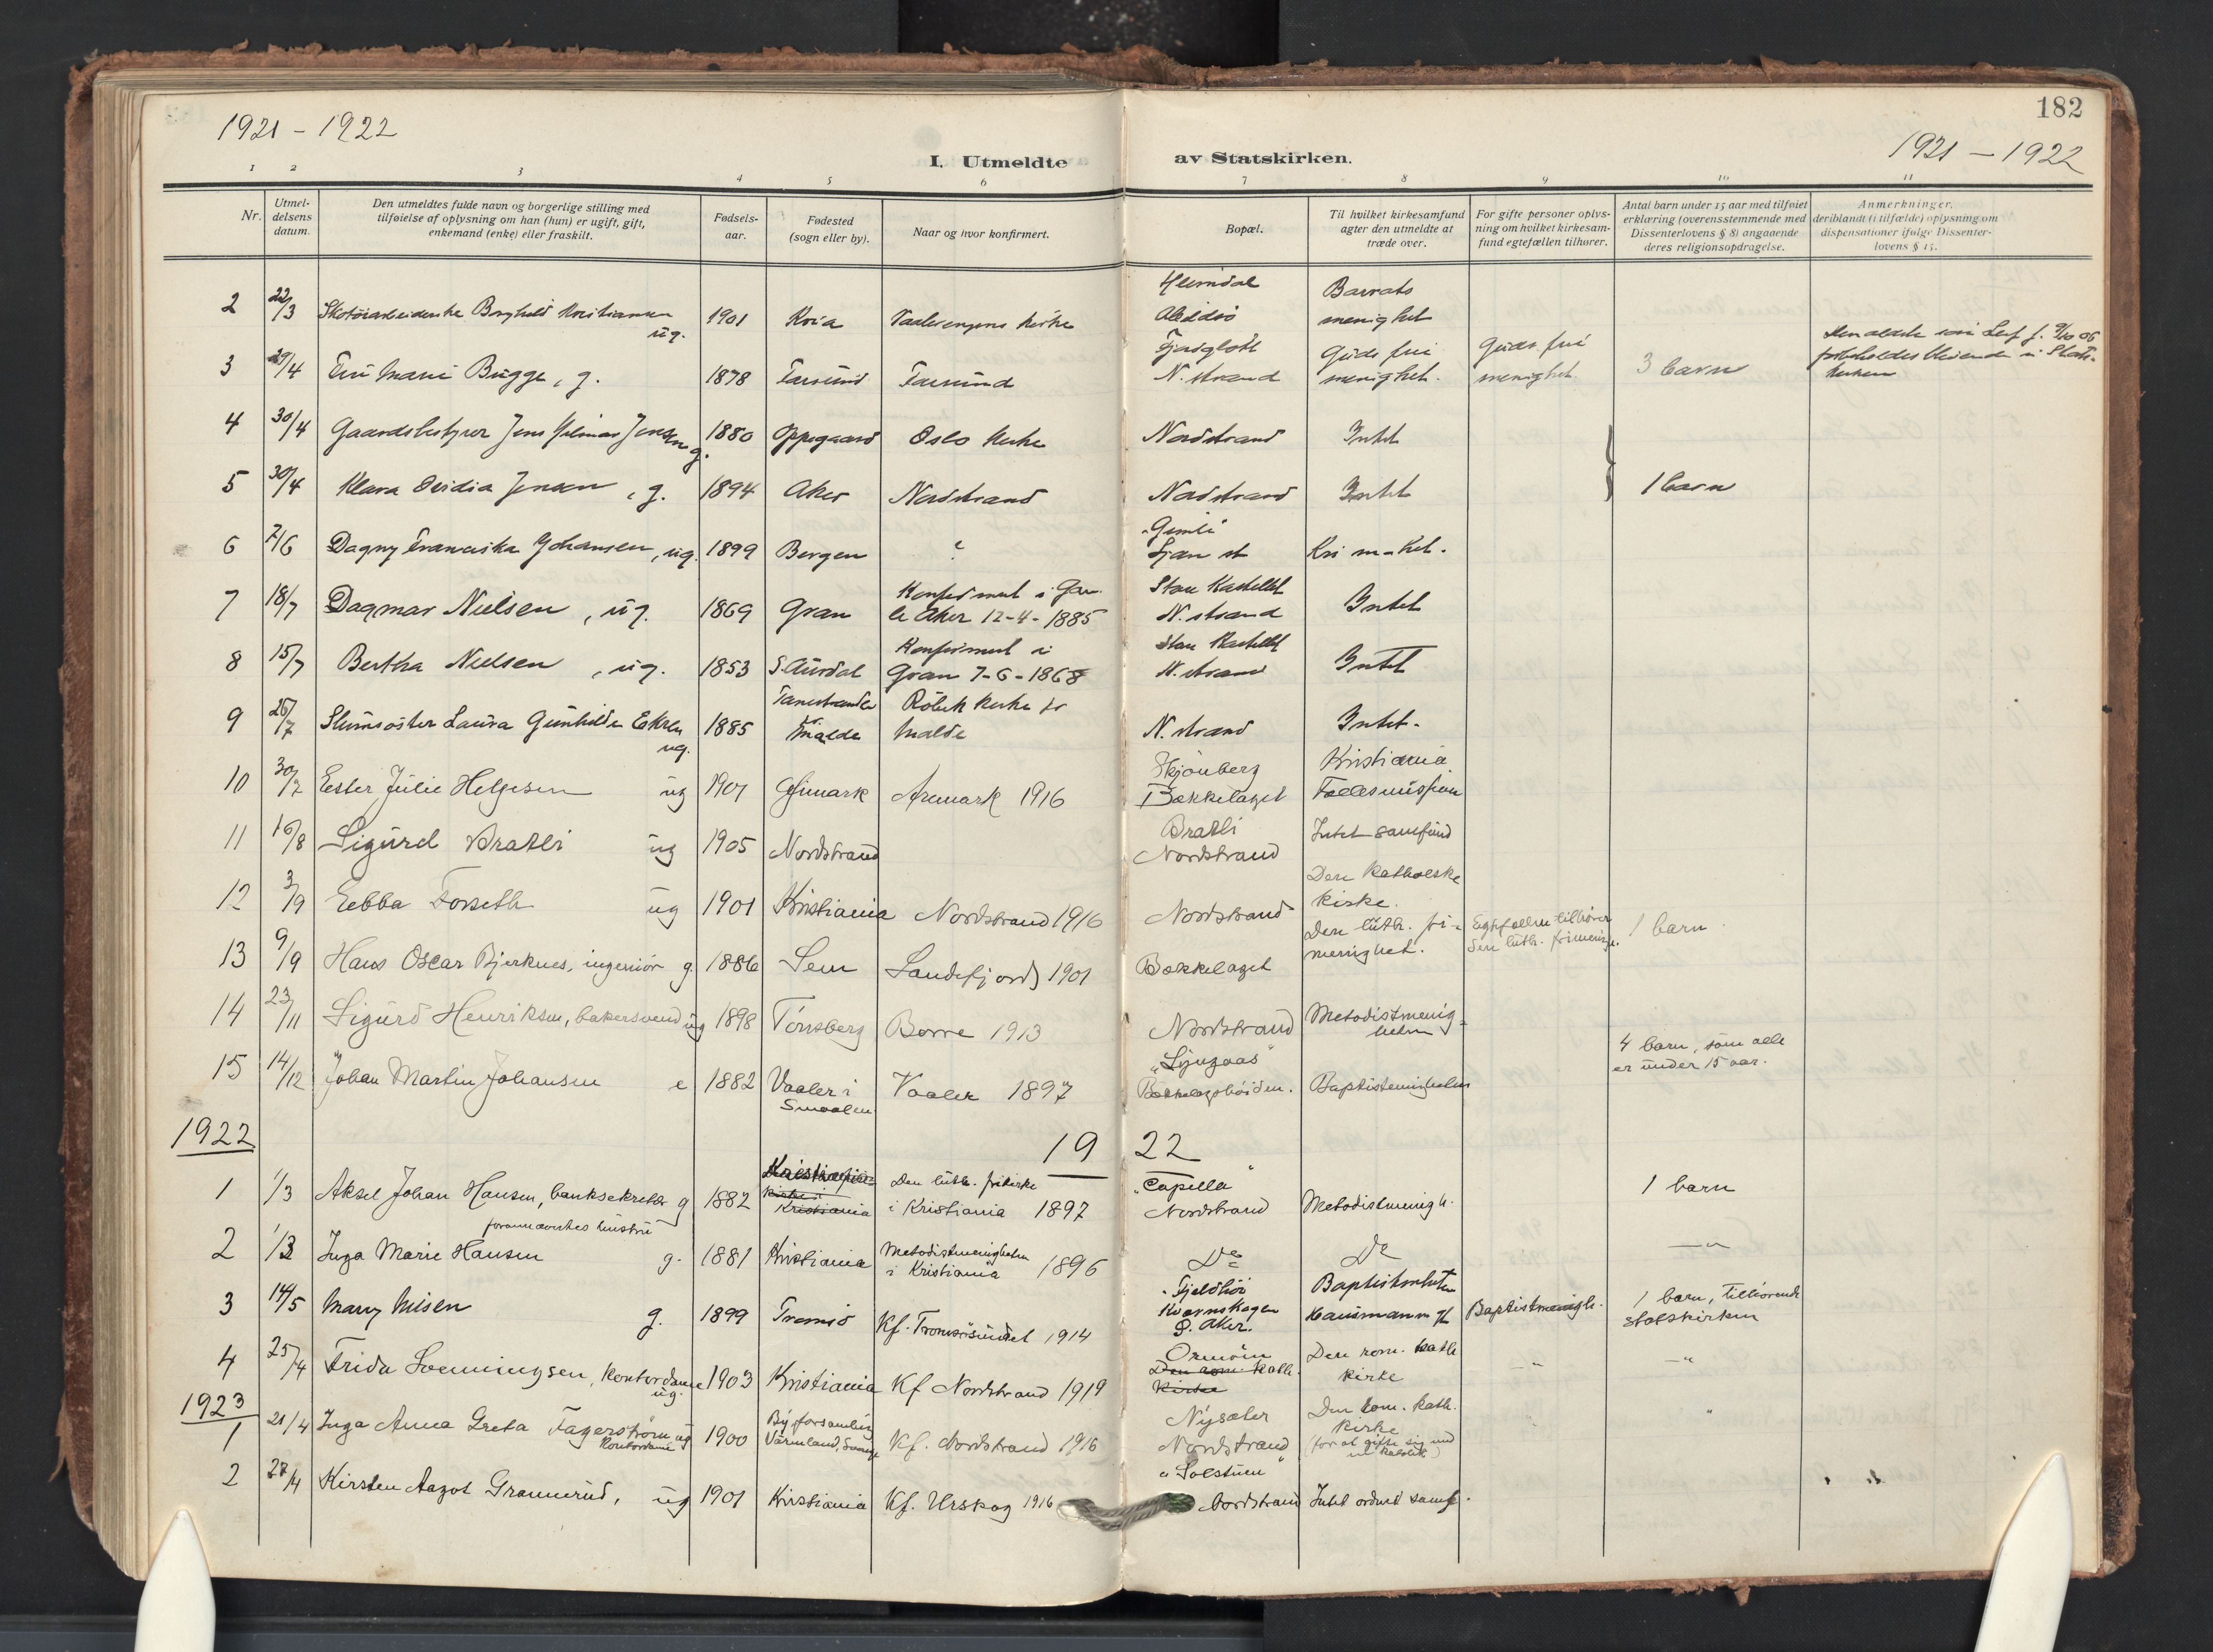 182
1921 – 1922
1921 – 1922
I. Utmeldte av Statskirken.
1 2 3 4 5 6 7 8 9 10 11
Nr.
Utmel-
delsens
datum.
Den utmeldtes fulde navn og borgerlige stilling med
tilføielse af oplysning om han (hun) er ugift, gift,
enkemand (enke) eller fraskilt.
Fødsels-
aar.
Fødested
(sogn eller by).
Naar og hvor konfirmert.
Bopæl.
Til hvilket kirkesamfund
agter den utmeldte at
træde over.
For gifte personer oplys-
ning om hvilket kirkesam-
fund egtefællen tilhører.
Antal barn under 15 aar med tilføiet
erklæring (overensstemmende med
Dissenterlovens § 8) angaaende
deres religionsopdragelse.
Anmerkninger,
deriblandt (i tilfælde) oplysning om
dispensationer ifølge Dissenter-
lovens § 15.
2 22/3 Borghild Kristiansen ug. 1901 Vaalerengens kirke Heimdal Barrats menighet
3 29/4 Marie Bugge, g. 1878 Farsund Farsund N. strand Guds frie menighet. Guds frie menighet. 3 barn
4 30/4 Gaardsbestyrer Jens Hilmar Jensen g. 1880 Oppegaard Oslo kirke Nordstrand Intet
5 30/4 Klara Ovidia Jensen, g. 1894 Aker Nordstrand Nordstrand Intet 1 barn
6 7/6 Dagny Franciska Johansen, ug. 1899 Bergen ? Gimle Ljan st
7 18/7 Dagmar Nielsen, ug. 1869 Gran Konfirmert i Gam-
le Aker 12-4-1885 Store Kastellet N. strand Intet
8 15/7 Bertha Nielsen, ug. 1853 S. Aurdal Konfirmert i
Gran 7-6-1868 Store Kastellet N. strand Intet
9 26/7 Slumsøster Laura Gunhilde Ekren ug. 1885 Molde Molde N. strand Intet.
10 30/7 Ester Julie Helgesen ug 1901 Aremark 1916 Skjønberg
Bækkelaget Kristiania
Fællesmission
11 16/8 Sigurd Bratli ug 1905 Nordstrand Bratli
Nordstrand Intet samfund
12 3/9 Ebba Forseth ug 1901 Kristiania Nordstrand 1916 Nordstrand Den katholske
kirke.
13 9/9 Hans Oscar Bjerknes, ingeniør g. 1886 Sem Sandefjord 1901 Bækkelaget Den luth. fri-
menighet. Egtefællen tilhører
den luth. frimenigh. 1 barn.
14 23/11 Sigurd Henriksen, bakersvend ug 1898 Tønsberg Borre 1913 Nordstrand Metodistmenig-
heten
15 14/12 Johan Martin Johansen e 1882 Vaaler i
Smaalen Vaaler 1897 "Lyngaas"
Bækkelagshøiden. Baptistmenigheten 4 barn, som alle
er under 15 aar.
1922 19 22
1 1/3 Aksel Johan Hansen, banksekretær g 1882 Kristiania Den luth. frikirke
i Kristiania 1897 "Capella"
Nordstrand Metodistmenigh. 1 barn
2 1/3 forannævntes hustru
Inga Marie Hansen g. 1881 Kristiania Metodistmenigheten
i Kristiania 1896 Do Do —"—
3 14/5 Mary Nilsen g. 1899 Tromsø Kf. Tromsøsundet 1914 Kværnskogen
Ø. Aker. Baptistmenigh. 1 barn, tilhørende
statskirken
4 25/4 Frida Svenningsen, kontordame ug. 1903 Kristiania Kf Nordstrand 1919 Ormøen
Den rom. kath.
kirke Den rom. kath
kirke —"— —"—
1923
1 21/4 Inga Anna Greta Fagerstrøm ug
Kontordame 1900 By forsamling
Värmland, Sverige Kf. Nordstrand 1916 Nysæter
Nordstrand Den rom. kath.
kirke
(for at gifte sig med
en katolik) "
2 27/4 Kirsten Aagot Grannerud, ug 1901 Kristiania Kf. Urskog 1916 "Solstuen"
Nordstrand Intet ordnet samf.